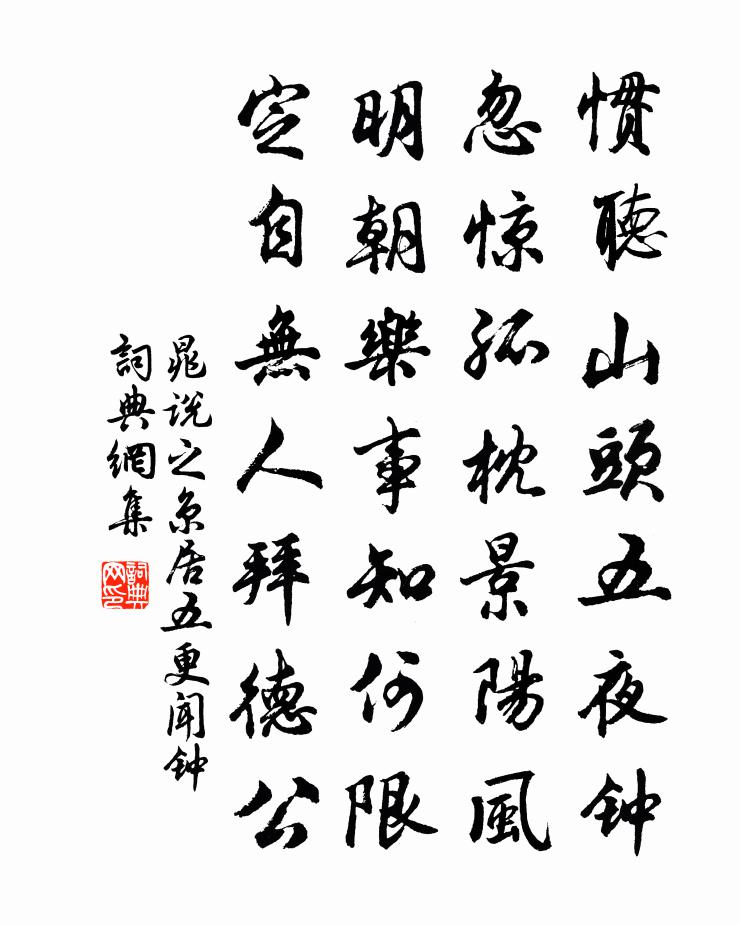 慣聽山頭五夜钟
忽惊孤枕景陽風
明朝樂事知何限
定自無人拜德公
晁说之京居五更闻钟
詞典網集
詞典网印